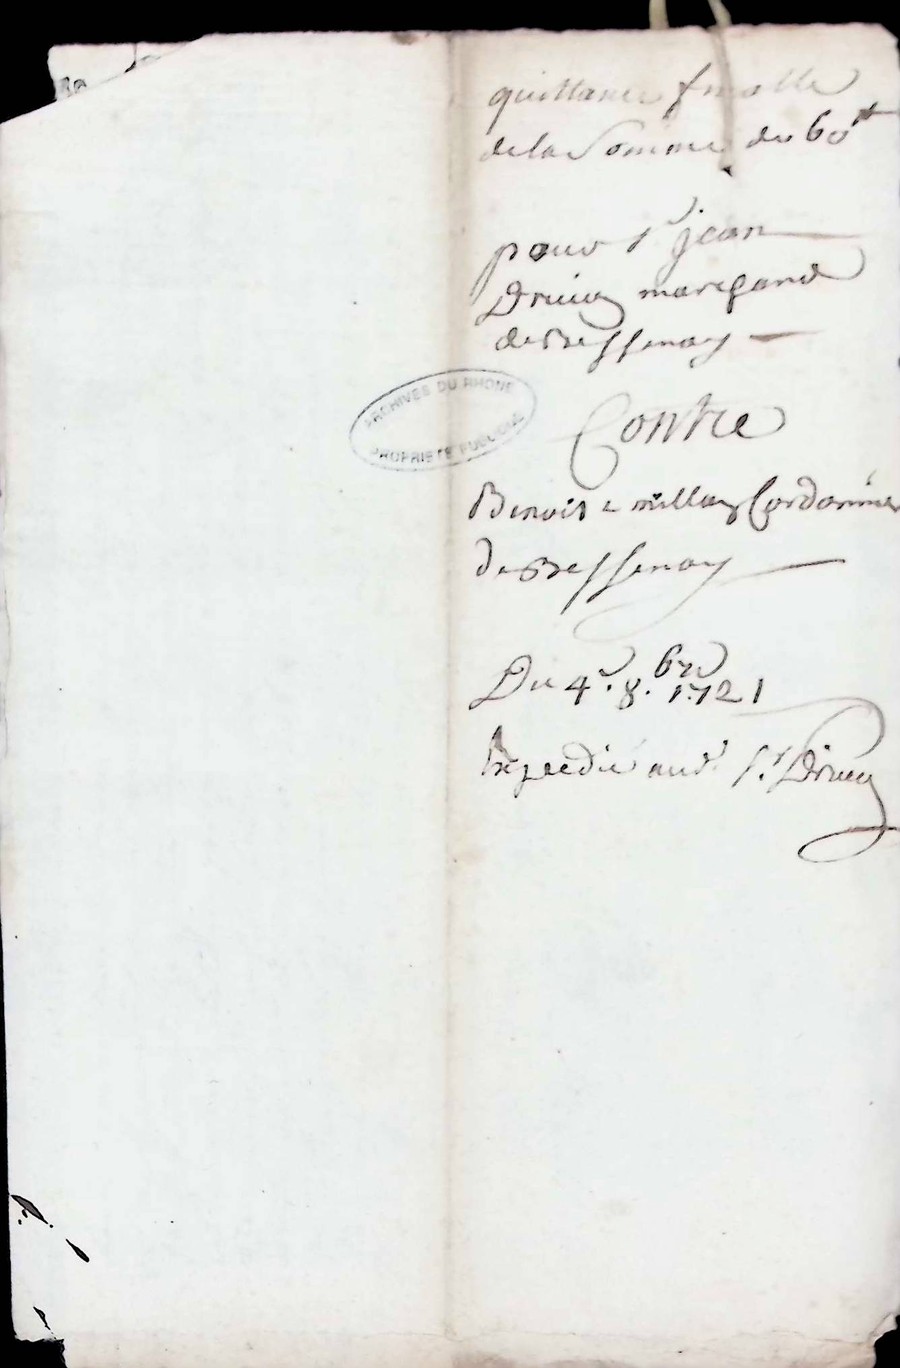 quittance finalle
de la Somme de 60tt
pour sr jean
Drivon marchand
de Bessenay
ARCHIVES DU RHONE
PROPRIETE PUBLIQUE
Contre
Benoit Cordonnier
de Bessenay
Du 4e 8bre 1721
Expedié aud. sr Drivon